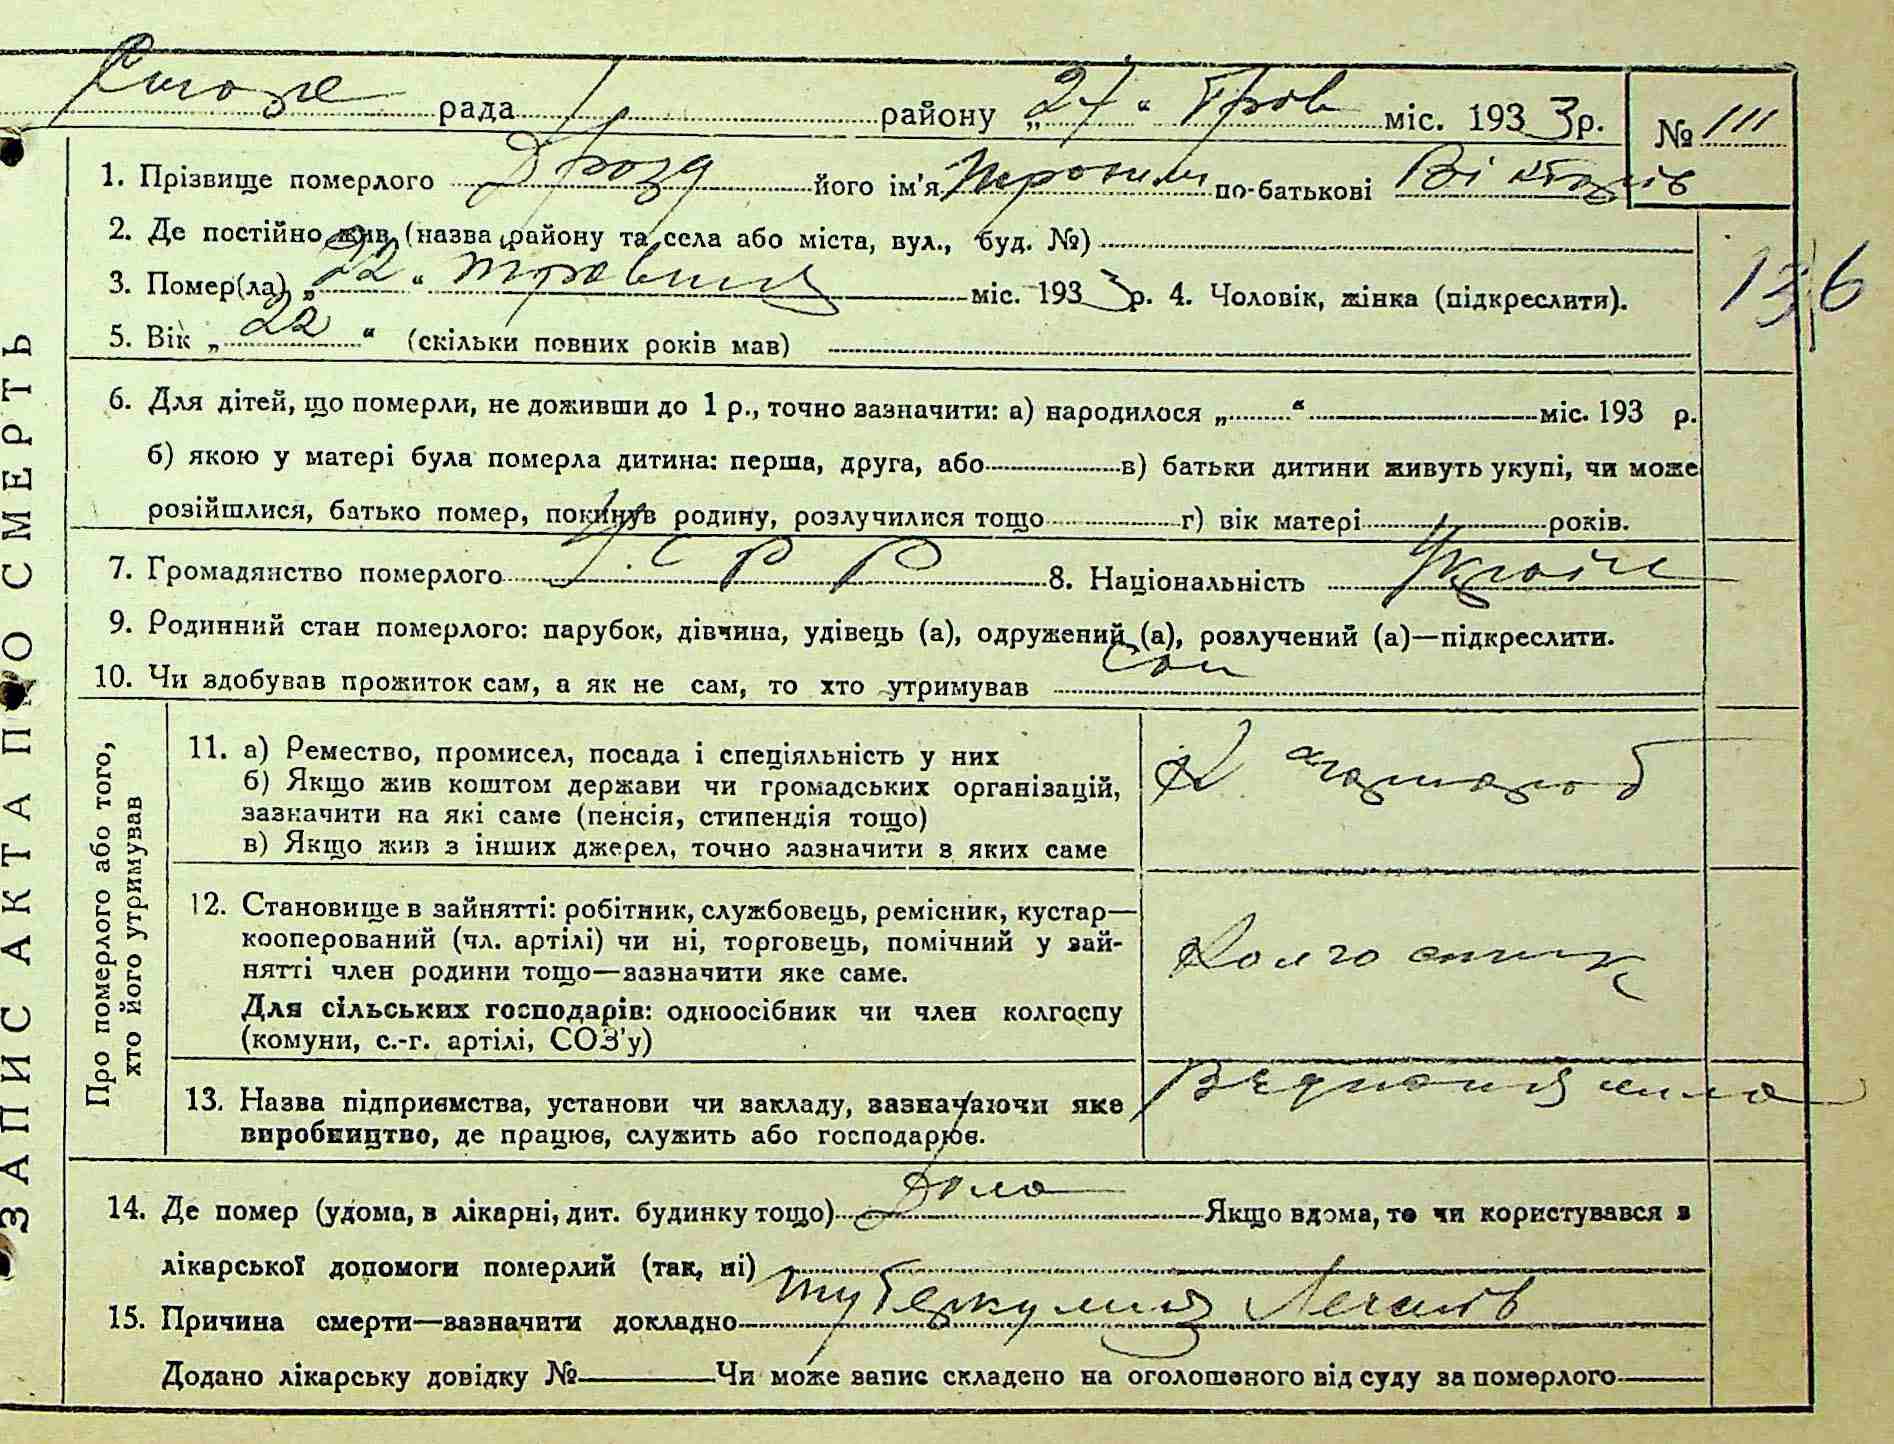 рада району „27“ Трав міс. 1933р. № 111
1. Прізвище померлого Дрозд його ім'я по-батькові Вікторів
2. Де постійно жив (назва району та села або міста, вул., буд. №)
3. Помер(ла) „22“ травня міс. 1933р. 4. Чоловік, жінка (підкреслити).
136
5. Вік „22“ (скільки повних років мав)
6. Для дітей, що померли, не доживши до 1 р., точно зазначити: а) народилося „ “ міс. 193 р.
б) якою у матері була померла дитина: перша, друга, або в) батьки дитини живуть укупі, чи може
розійшлися, батько помер, покинув родину, розлучилися тощо г) вік матері років.
7. Громадянство померлого УСРР 8. Національність Україн
9. Родинний стан померлого: парубок, дівчина, удівець (а), одружений (а), розлучений (а)—підкреслити.
10. Чи здобував прожиток сам, а як не сам, то хто утримував Сам
ЗАПИС АКТА ПРО СМЕРТЬ
Про померлого або того,
хто його утримував
11. а) Ремество, промисел, посада і спеціяльність у них
б) Якщо жив коштом держави чи громадських організацій,
зазначити на які саме (пенсія, стипендія тощо)
в) Якщо жив з інших джерел, точно зазначити з яких саме
12. Становище в зайнятті: робітник, службовець, ремісник, кустар—
кооперований (чл. артілі) чи ні, торговець, помічний у зай-
нятті член родини тощо—зазначити яке саме.
Для сільських господарів: одноосібник чи член колгоспу
(комуни, с.-г. артілі, СОЗ'у)
Колгоспник
13. Назва підприємства, установи чи закладу, зазначаючи яке
виробництво, де працює, служить або господарює.
14. Де помер (удома, в лікарні, дит. будинку тощо) Дома Якщо вдома, то чи користувався з
лікарської допомоги померлий (так, ні)
15. Причина смерти—зазначити докладно туберкульоз Легенів
Додано лікарську довідку № Чи може запис складено на оголошеного від суду за померлого